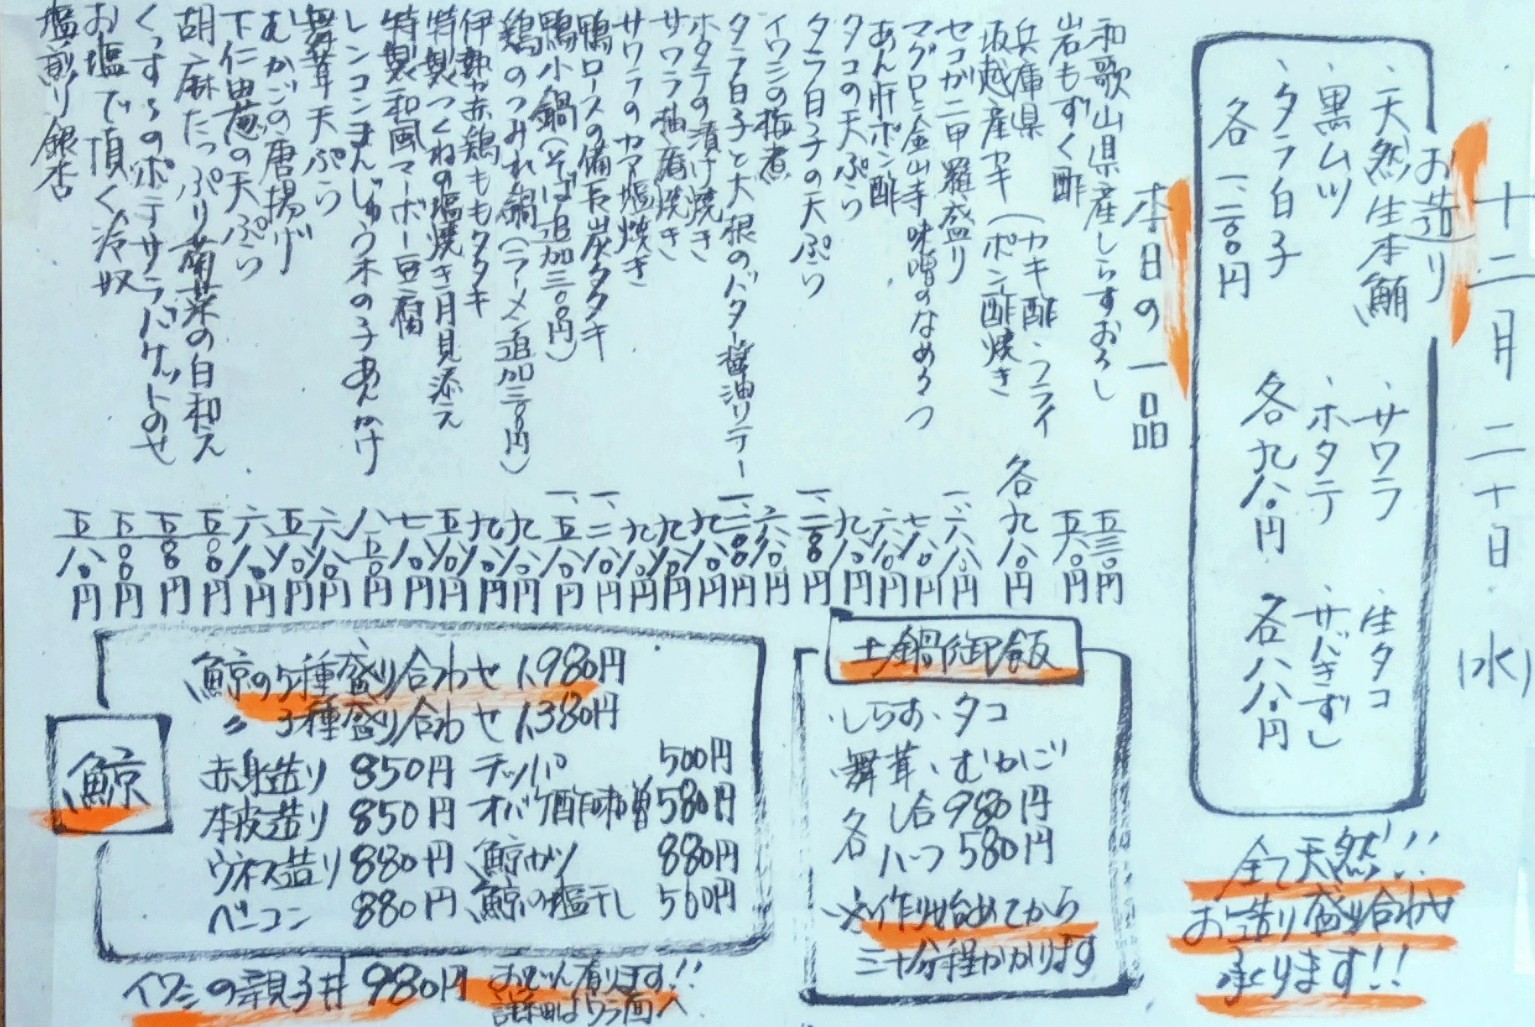 十二月二十日(水)
お造り
・天然生本鮪
・黒ムツ
・タラ白子
各一、二八〇円
・サワラ
・ホタテ
各九八〇円
・生タコ
・サバきずし
各八八〇円
全て天然!!
お造り盛り合わせ
承ります!!
本日の一品
和歌山県産しらすおろし 五三〇円
岩もずく酢 五八〇円
兵庫県
坂越産カキ(カキ酢・フライ
(ポン酢焼き 各九八〇円
セコガニ甲羅盛り 一、六八〇円
マグロと金山寺味噌のなめろう 七八〇円
あん肝ポン酢 六八〇円
タコの天ぷら 九八〇円
タラ白子の天ぷら 一、二八〇円
イワシの梅煮 六八〇円
タラ白子と大根のバター醤油ソテー 一、二八〇円
ホタテの漬け焼き 九八〇円
サワラ柚庵焼き 九八〇円
サワラのカマ塩焼き 九八〇円
鴨ロースの備長炭タタキ 一、二八〇円
鴨小鍋(そば追加三〇〇円) 一、五八〇円
鶏のつみれ鍋(ラーメン追加三〇〇円) 九八〇円
伊勢赤鶏ももタタキ 九八〇円
特製つくねの塩焼き月見添え 五八〇円
特製和風マーボー豆腐 七八〇円
レンコンまんじゅう木の子あんかけ 八五〇円
舞茸天ぷら 六八〇円
むかごの唐揚げ 五八〇円
下仁田葱の天ぷら 六八〇円
胡麻たっぷり菊菜の白和え 五八〇円
くっすんのポテサラバゲットのせ 五八〇円
お塩で頂く冷奴 五〇〇円
塩煎り銀杏 五八〇円
土鍋御飯
・しらす・タコ
・舞茸・むかご
各 一合980円
ハーフ580円
※作り始めてから
三十分程かかります
鯨
鯨の5種盛り合わせ 1,980円
〃 3種盛り合わせ 1,380円
赤身造り 850円 テッパ 500円
本皮造り 850円 オバケ酢味噌 580円
ウネス造り 880円 鯨カツ 880円
ベーコン 880円 鯨の塩干し 560円
イワシの親子丼 980円
おでん有ります!!
詳細はうら面へ